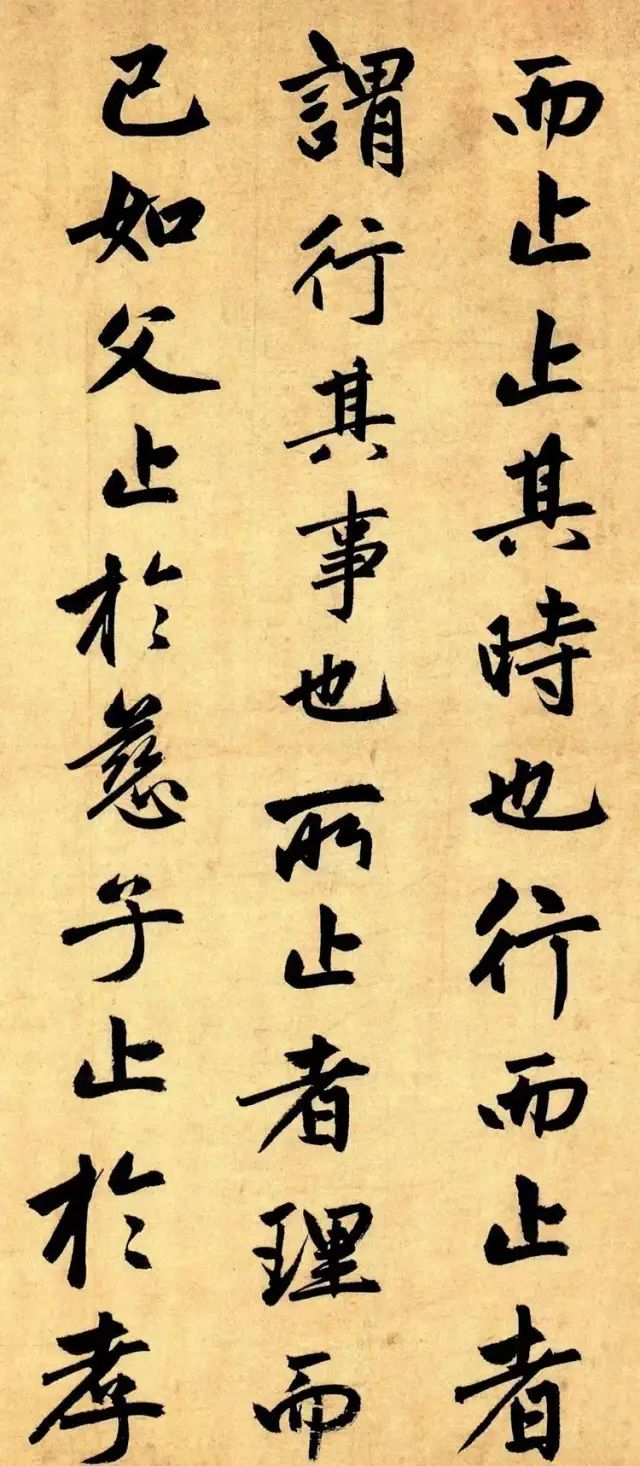 而止止其時也行而止者
謂行其事也所止者理而
已如父止於慈子止於孝